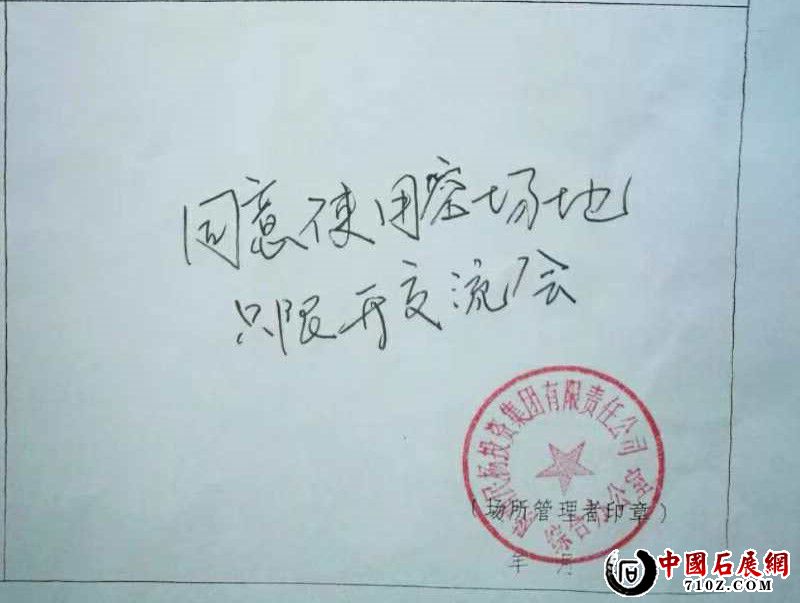 同意使用空场地
只限开交流会
投资集团有限责任公司
综合办公室
（场所管理者印章）
年 月
中國石展網
710Z.COM